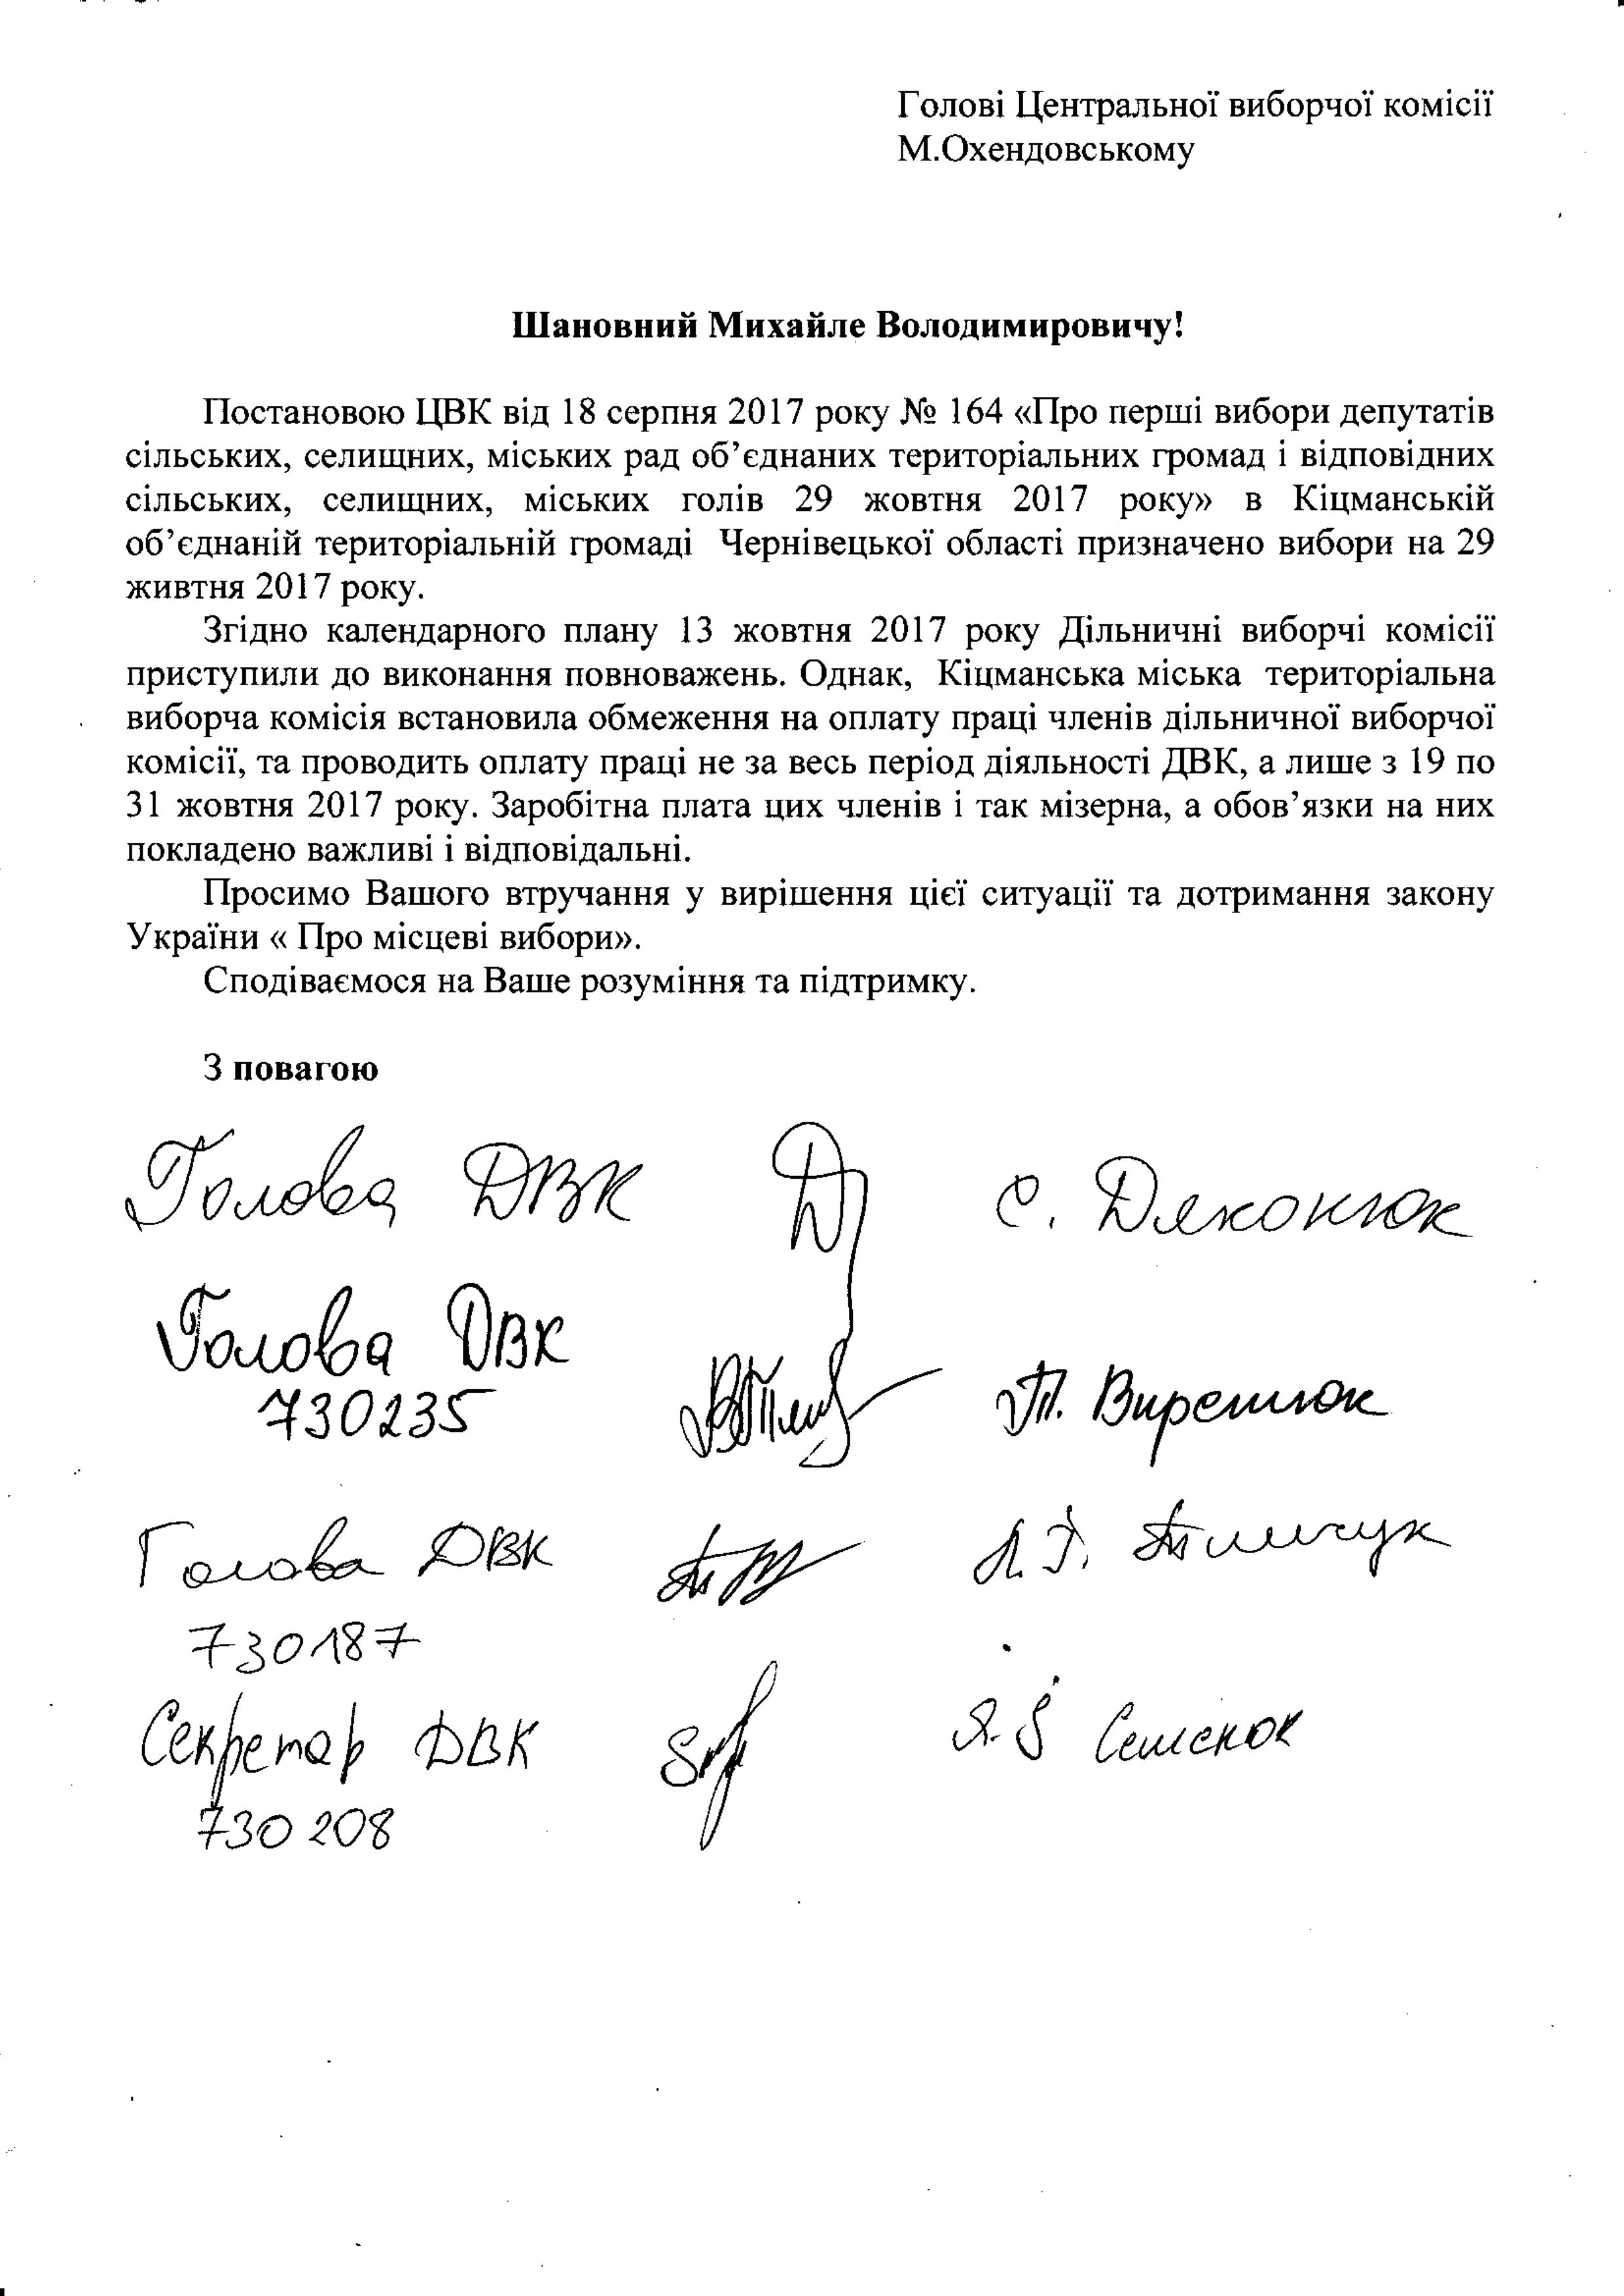 Голові Центральної виборчої комісії
М.Охендовському
Шановний Михайле Володимировичу!
Постановою ЦВК від 18 серпня 2017 року № 164 «Про перші вибори депутатів
сільських, селищних, міських рад об’єднаних територіальних громад і відповідних
сільських, селищних, міських голів 29 жовтня 2017 року» в Кіцманській
об’єднаній територіальній громаді Чернівецької області призначено вибори на 29
живтня 2017 року.
Згідно календарного плану 13 жовтня 2017 року Дільничні виборчі комісії
приступили до виконання повноважень. Однак, Кіцманська міська територіальна
виборча комісія встановила обмеження на оплату праці членів дільничної виборчої
комісії, та проводить оплату праці не за весь період діяльності ДВК, а лише з 19 по
31 жовтня 2017 року. Заробітна плата цих членів і так мізерна, а обов’язки на них
покладено важливі і відповідальні.
Просимо Вашого втручання у вирішення цієї ситуації та дотримання закону
України « Про місцеві вибори».
Сподіваємося на Ваше розуміння та підтримку.
З повагою
Голова ДВК С. Дяконюк
Голова ДВК
730235 Т.
Голова ДВК
730187
Секретар ДВК Семенюк
730208